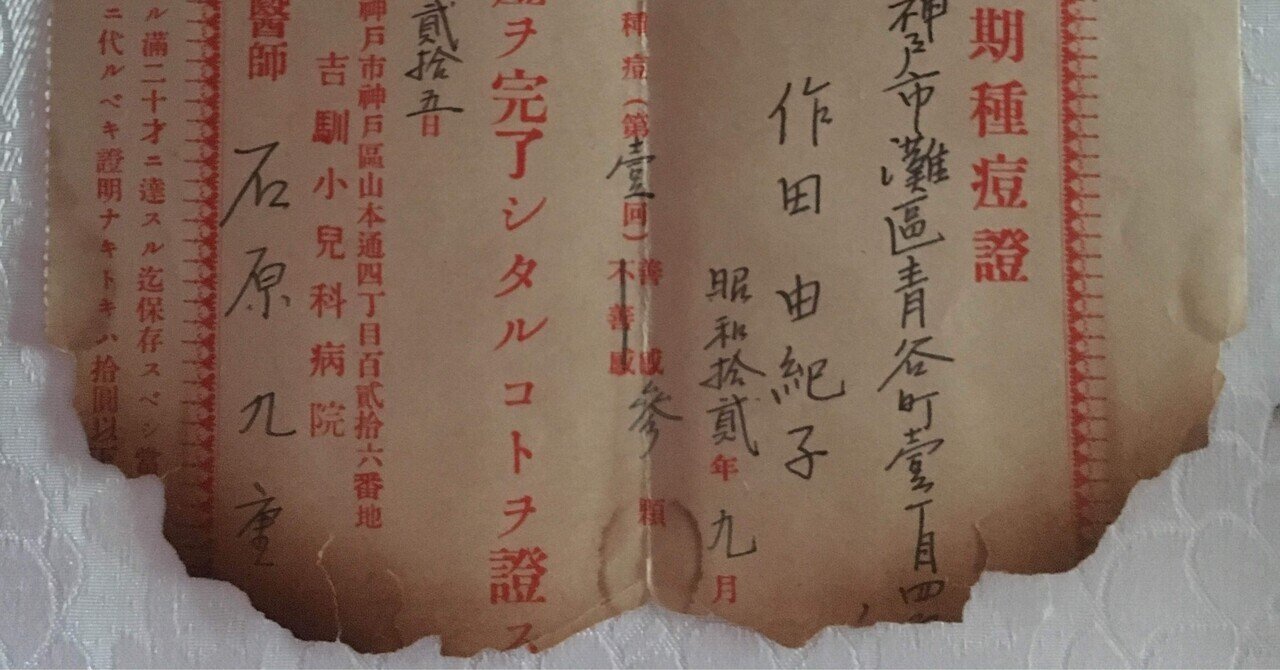 期種痘證
神戸市灘區青谷町壹丁目四
作田由紀子
昭和拾貳年九月
種痘(第壹回)善感參顆
不善感
ヲ完了シタルコトヲ證ス
貳拾五日
神戸市神戸區山本通四丁目百貳拾六番地
吉馴小兒科病院
醫師 石原九重
ル滿二十才ニ達スル迄保存スベシ
ニ代ルベキ證明ナキトキハ拾圓以下